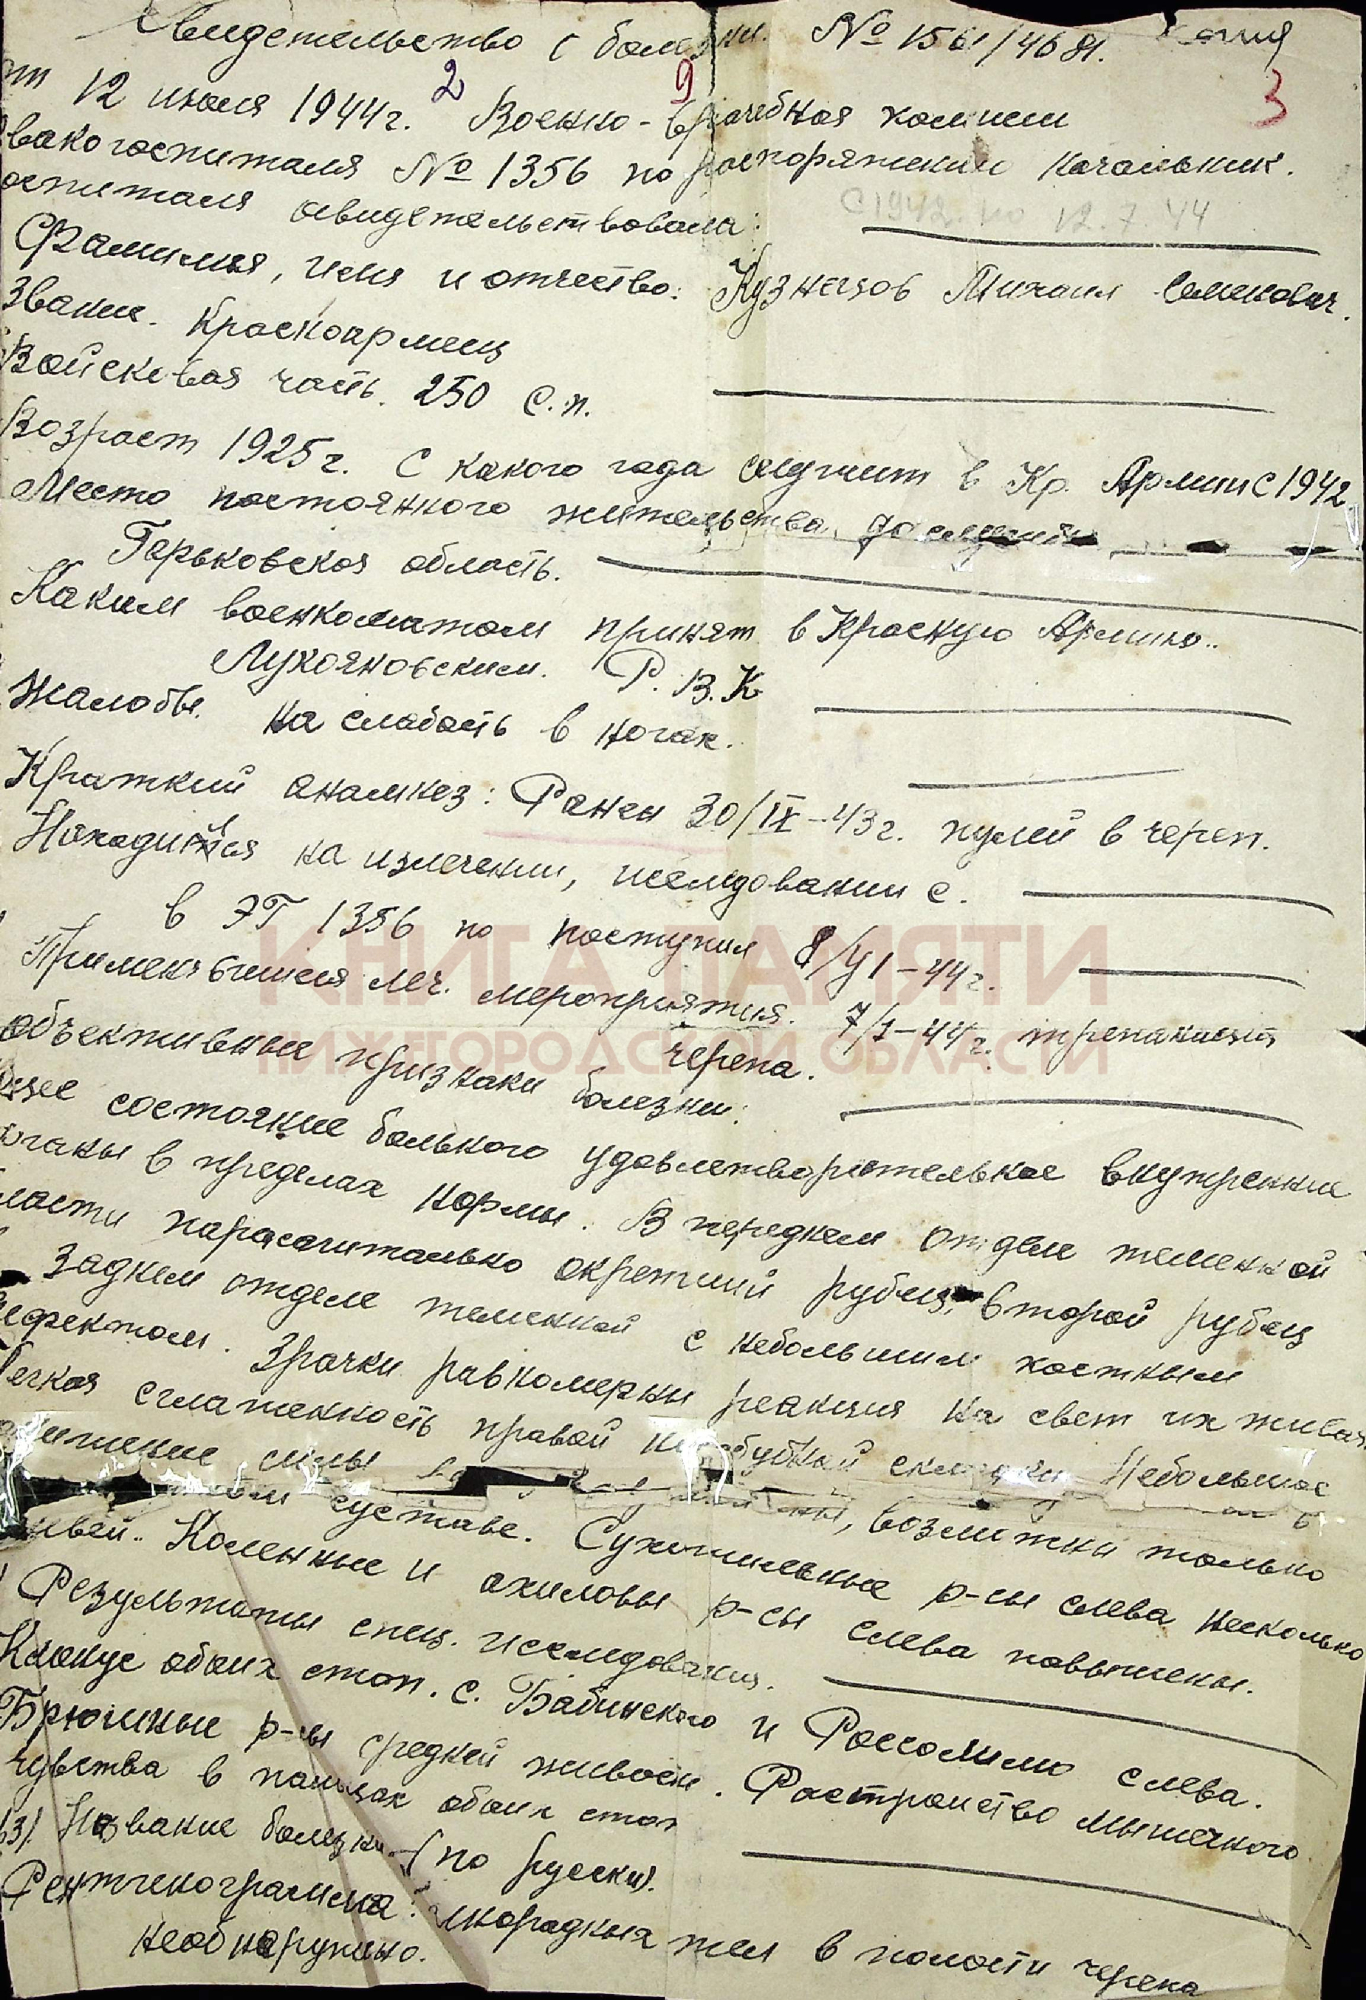 Свидетельство о болезни. № 1561/4681. Копия
2 9 3
от 12 июля 1944г. Военно-врачебная комисси
вакогоспиталя № 1356 по распоряжению начальник.
оспиталя освидетельствовала:
с 1942. по 12.7.44
Фамилия, имя и отчество: Кузнецов Михаил Семенович.
Звание. Красноармеец
Войсковая часть. 250 с.п.
Возраст 1925г. С какого года служит в Кр. Армии с 1942
Место постоянного жительства до службы
Горьковская область.
Каким военкоматом принят в Красную Армию..
Лукояновским. Р.В.К
Жалобы. на слабость в ногах.
Краткий анамнез: Ранен 30/IX-43г. пулей в череп.
Находился на излечении, исследовании с.
в ЭГ 1356 по поступил 8/VI-44г.
КНИГА ПАМЯТИ
Применявшиеся леч. мероприятия. 7/I-44г. трепанация
черепа.
НИЖЕГОРОДСКОЙ ОБЛАСТИ
Объективные признаки болезни:
щее состояние больного удовлетворительное внутренние
органы в пределах нормы. В переднем отделе теменной
ласти парасагитально окрепший рубец, второй рубец
Заднем отделе теменной с небольшим костным
ефектом. Зрачки равномерны реакция на свет их живая
Легкая сглаженность правой носогубной складки Небольшое
силы
суставе. возможны только
Сухожильные р-сы слева несколько
живей.. Коленные и ахиловы р-сы слева повышены.
Результаты спец. исследования.
Клонус обоих стоп. с. Бабинского и Россолимо слева.
Брюшные р-сы средней живости. Растройство мышечного
чувства в пальцах обоих стоп
13). Название болезни (по русски).
Рентгенограмма: инородных тел в полости черепа
необнаружено.